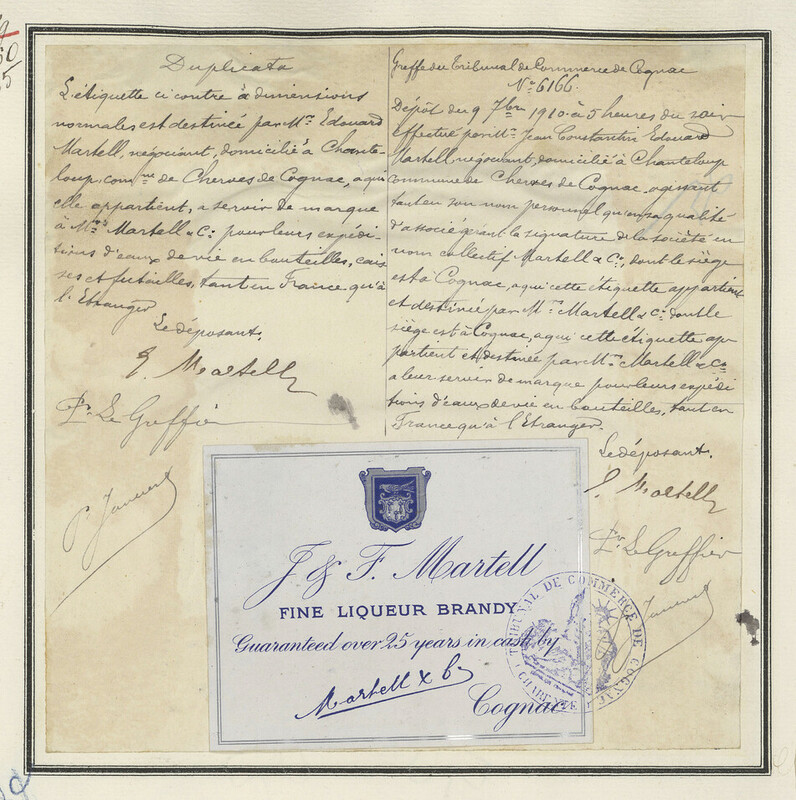 Duplicata
L'étiquette ci contre à dimensions
normales est destinée par Mr. Edouard
Martell, négociant, domicilié à Chante-
loup, comne de Cherves de Cognac, à qui
elle appartient, a servir de marque
à Mrs Martell & Co. pour leurs expédi-
tions d'eaux de vie en bouteilles, cais
ses et futailles, tant en France qu'à
l'Etranger
Le déposant,
E. Martell
Pr. Le Greffier
Greffe du Tribunal de Commerce de Cognac
No. 6166.
Dépôt du 9 7bre 1910 à 5 heures du soir
effectué par Mr. Jean Constantin Edouard
Martell, négociant, domicilié à Chanteloup
commune de Cherves de Cognac, agissant
tant en son nom personnel qu'en sa qualité
d'associé ayant la signature de la société en
nom collectif Martell & Co., dont le siège
est à Cognac, a qui cette étiquette appartient
et destinée par Mrs. Martell & Co. dont le
siège est à Cognac, a qui cette étiquette ap-
partient et destinée par Mrs. Martell & Co
a leur servir de marque pour leurs expédi
tions d'eaux de vie en bouteilles, tant en
France qu'à l'Etranger.
Le déposant.
E. Martell
Pr. Le Greffier
J & F. Martell
FINE LIQUEUR BRANDY
Guaranteed over 25 years in cask by
Martell & Co
Cognac
TRIBUNAL DE COMMERCE DE COGNAC
CHARENTE